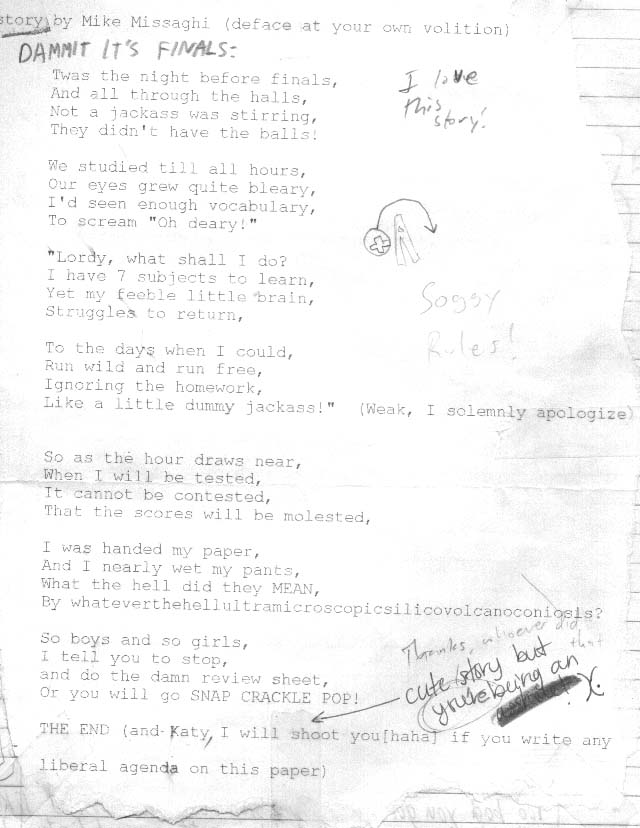 story by Mike Missaghi (deface at your own volition)
DAMMIT IT'S FINALS:
Twas the night before finals,
And all through the halls,
Not a jackass was stirring,
They didn't have the balls!
I love
this
story!
We studied till all hours,
Our eyes grew quite bleary,
I'd seen enough vocabulary,
To scream "Oh deary!"
"Lordy, what shall I do?
I have 7 subjects to learn,
Yet my feeble little brain,
Struggles to return,
Soggy
Rules!
To the days when I could,
Run wild and run free,
Ignoring the homework,
Like a little dummy jackass!" (Weak, I solemnly apologize)
So as the hour draws near,
When I will be tested,
It cannot be contested,
That the scores will be molested,
I was handed my paper,
And I nearly wet my pants,
What the hell did they MEAN,
By whateverthehellultramicroscopicsilicovolcanoconiosis?
So boys and so girls,
I tell you to stop,
and do the damn review sheet,
Or you will go SNAP CRACKLE POP!
Thanks, whoever did
that
cute story but
you're being an
THE END (and Katy, I will shoot you[haha] if you write any
liberal agenda on this paper)